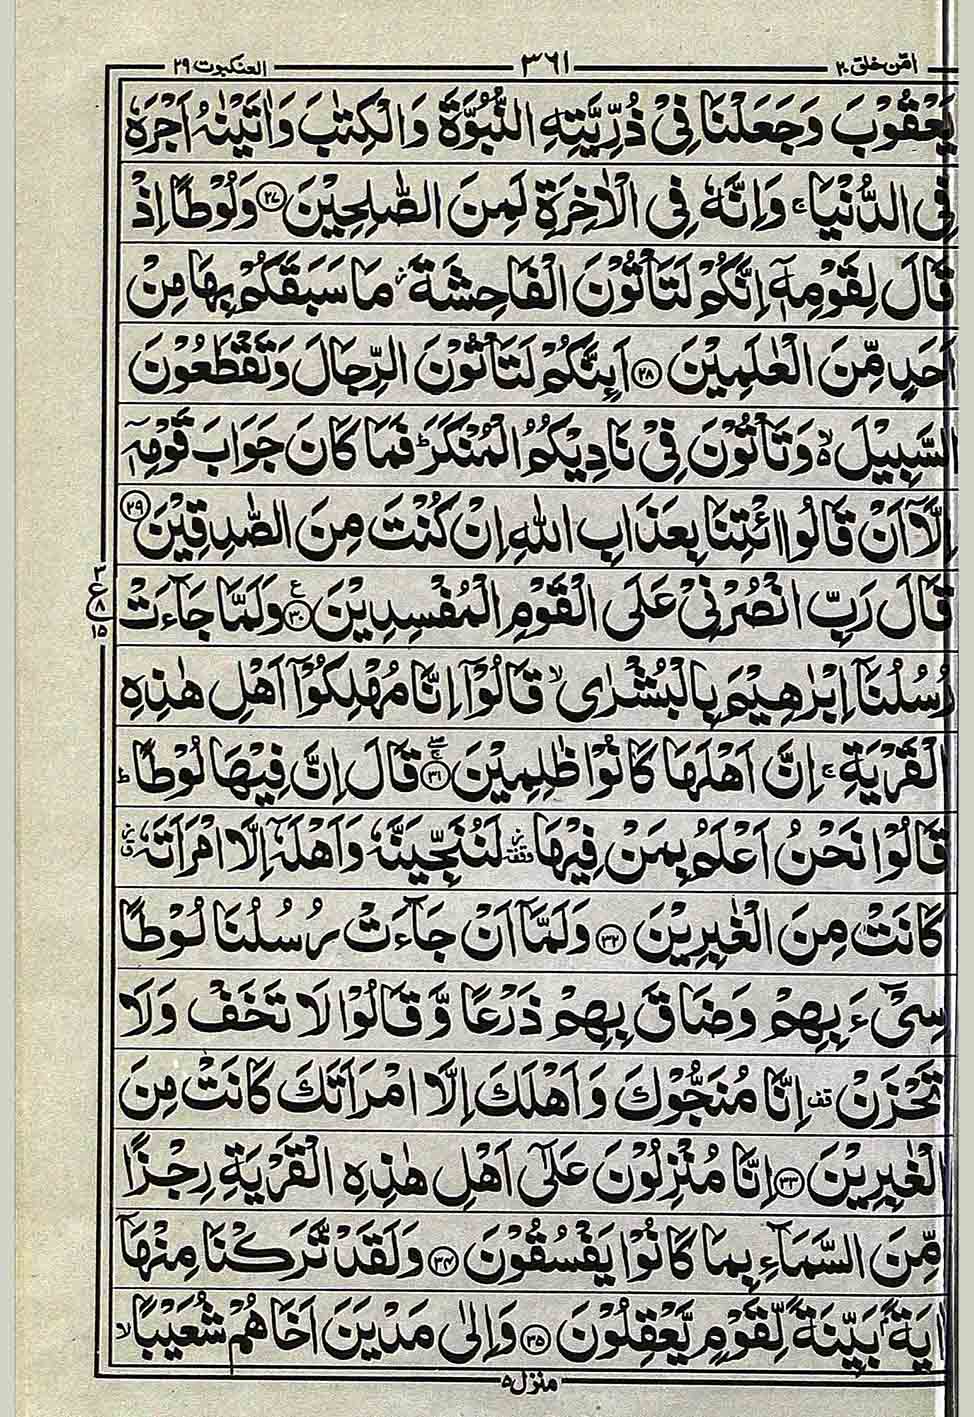 امّن خلق ٢٠ ٣٦١ العنکبوت ٢٩
يَعْقُوْبَ وَجَعَلْنَا فِيْ ذُرِّيَّتِهِ النُّبُوَّةَ وَالْكِتٰبَ وَاٰتَيْنٰهُ اَجْرَهٗ
فِي الدُّنْيَا ۚ وَاِنَّهٗ فِي الْاٰخِرَةِ لَمِنَ الصّٰلِحِيْنَ ۲۷ وَلُوْطًا اِذْ
قَالَ لِقَوْمِهٖٓ اِنَّكُمْ لَتَاْتُوْنَ الْفَاحِشَةَ ۡ مَا سَبَقَكُمْ بِهَا مِنْ
اَحَدٍ مِّنَ الْعٰلَمِيْنَ ۲۸ اَىِٕنَّكُمْ لَتَاْتُوْنَ الرِّجَالَ وَتَقْطَعُوْنَ
السَّبِيْلَ ۙ۬ وَتَاْتُوْنَ فِيْ نَادِيْكُمُ الْمُنْكَرَ ؕ فَمَا كَانَ جَوَابَ قَوْمِهٖٓ
اِلَّآ اَنْ قَالُوا ائْتِنَا بِعَذَابِ اللّٰهِ اِنْ كُنْتَ مِنَ الصّٰدِقِيْنَ ۲۹
قَالَ رَبِّ انْصُرْنِيْ عَلَى الْقَوْمِ الْمُفْسِدِيْنَ ۳۰ ع وَلَمَّا جَآءَتْ
٣ ع ٨ ١٥
رُسُلُنَآ اِبْرٰهِيْمَ بِالْبُشْرٰى ۙ قَالُوْٓا اِنَّا مُهْلِكُوْٓا اَهْلِ هٰذِهِ
الْقَرْيَةِ ۚ اِنَّ اَهْلَهَا كَانُوْا ظٰلِمِيْنَ ۳۱ ۚۖ قَالَ اِنَّ فِيْهَا لُوْطًا ؕ
قَالُوْا نَحْنُ اَعْلَمُ بِمَنْ فِيْهَا ۫ وقفة لَنُنَجِّيَنَّهٗ وَاَهْلَهٗٓ اِلَّا امْرَاَتَهٗ
كَانَتْ مِنَ الْغٰبِرِيْنَ ۳۲ وَلَمَّآ اَنْ جَآءَتْ رُسُلُنَا لُوْطًا
سِيْٓءَ بِهِمْ وَضَاقَ بِهِمْ ذَرْعًا وَّقَالُوْا لَا تَخَفْ وَلَا
تَحْزَنْ قف اِنَّا مُنَجُّوْكَ وَاَهْلَكَ اِلَّا امْرَاَتَكَ كَانَتْ مِنَ
الْغٰبِرِيْنَ ۳۳ اِنَّا مُنْزِلُوْنَ عَلٰٓى اَهْلِ هٰذِهِ الْقَرْيَةِ رِجْزًا
مِّنَ السَّمَآءِ بِمَا كَانُوْا يَفْسُقُوْنَ ۳۴ وَلَقَدْ تَّرَكْنَا مِنْهَآ
اٰيَةً ۢ بَيِّنَةً لِّقَوْمٍ يَّعْقِلُوْنَ ۳۵ وَاِلٰى مَدْيَنَ اَخَاهُمْ شُعَيْبًا ۙ
منزل ۵